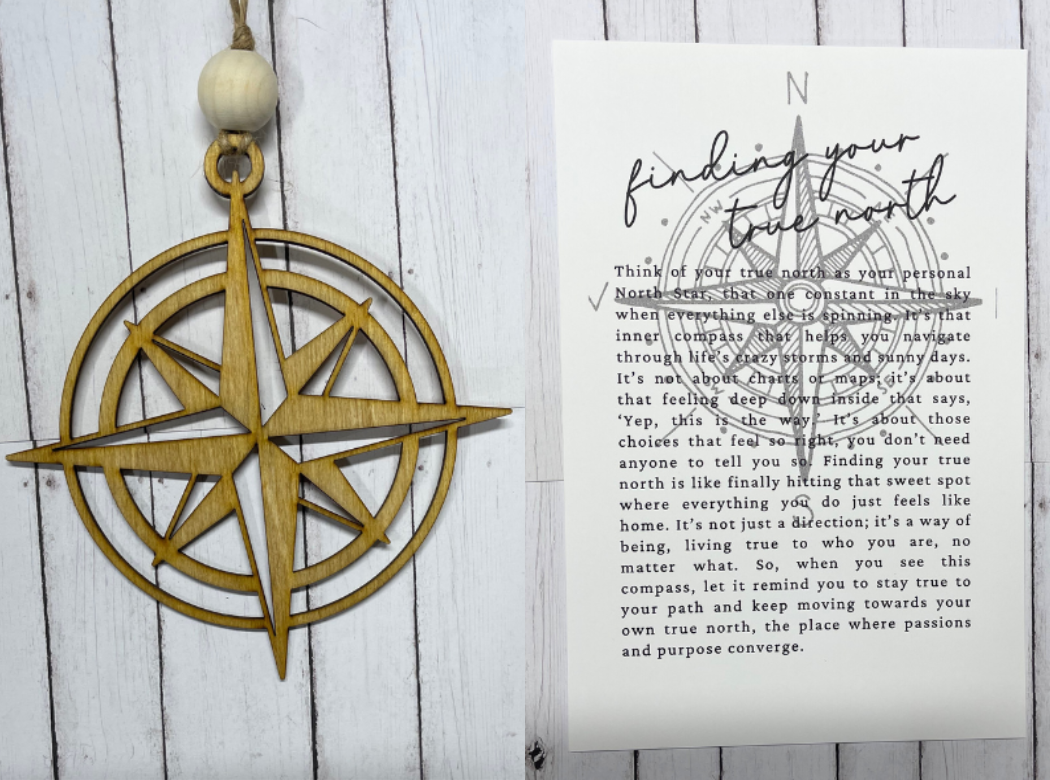 N
finding your
true north
NW
Think of your true north as your personal
North Star, that one constant in the sky
when everything else is spinning. It's that
inner compass that helps you navigate
through life's crazy storms and sunny days.
It's not about charts or maps; it's about
that feeling deep down inside that says,
'Yep, this is the way.' It's about those
choices that feel so right, you don't need
anyone to tell you so. Finding your true
north is like finally hitting that sweet spot
where everything you do just feels like
home. It's not just a direction; it's a way of
being, living true to who you are, no
matter what. So, when you see this
compass, let it remind you to stay true to
your path and keep moving towards your
own true north, the place where passions
and purpose converge.
S